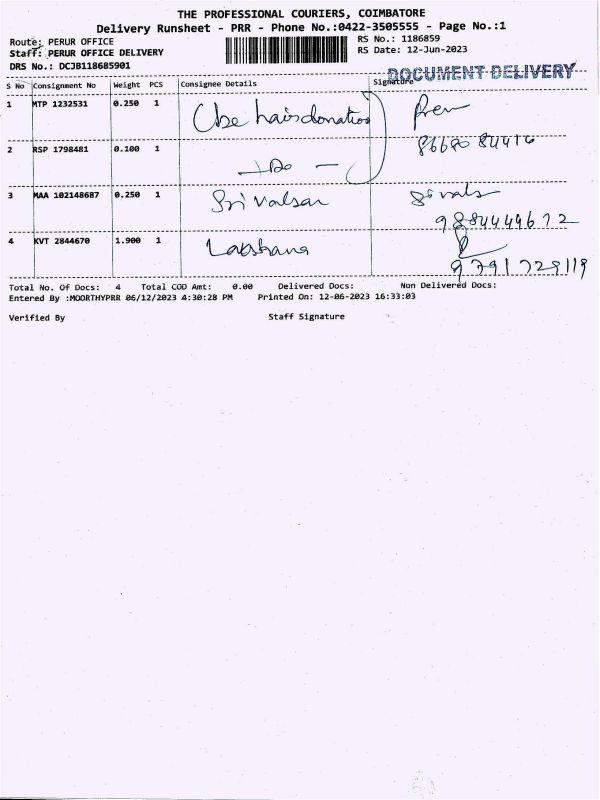 THE PROFESSIONAL COURIERS, COIMBATORE
Delivery Runsheet - PRR - Phone No.:0422-3505555 - Page No.:1
Route: PERUR OFFICE
RS No.: 1186859
Staff: PERUR OFFICE DELIVERY
RS Date: 12-Jun-2023
DRS No.: DCJB118685901
DOCUMENT DELIVERY
S No Consignment No Weight PCS Consignee Details Signature
1 MTP 1232531 0.250 1 Cbe hairdonation Prem
2 RSP 1798481 0.100 1 - Do -
3 MAA 102148687 0.250 1 Sri Valsan
9884449672
4 KVT 2844670 1.900 1 Lakshana
9791729119
Total No. Of Docs: 4 Total COD Amt: 0.00 Delivered Docs: Non Delivered Docs:
Entered By :MOORTHYPRR 06/12/2023 4:30:28 PM Printed On: 12-06-2023 16:33:03
Verified By Staff Signature